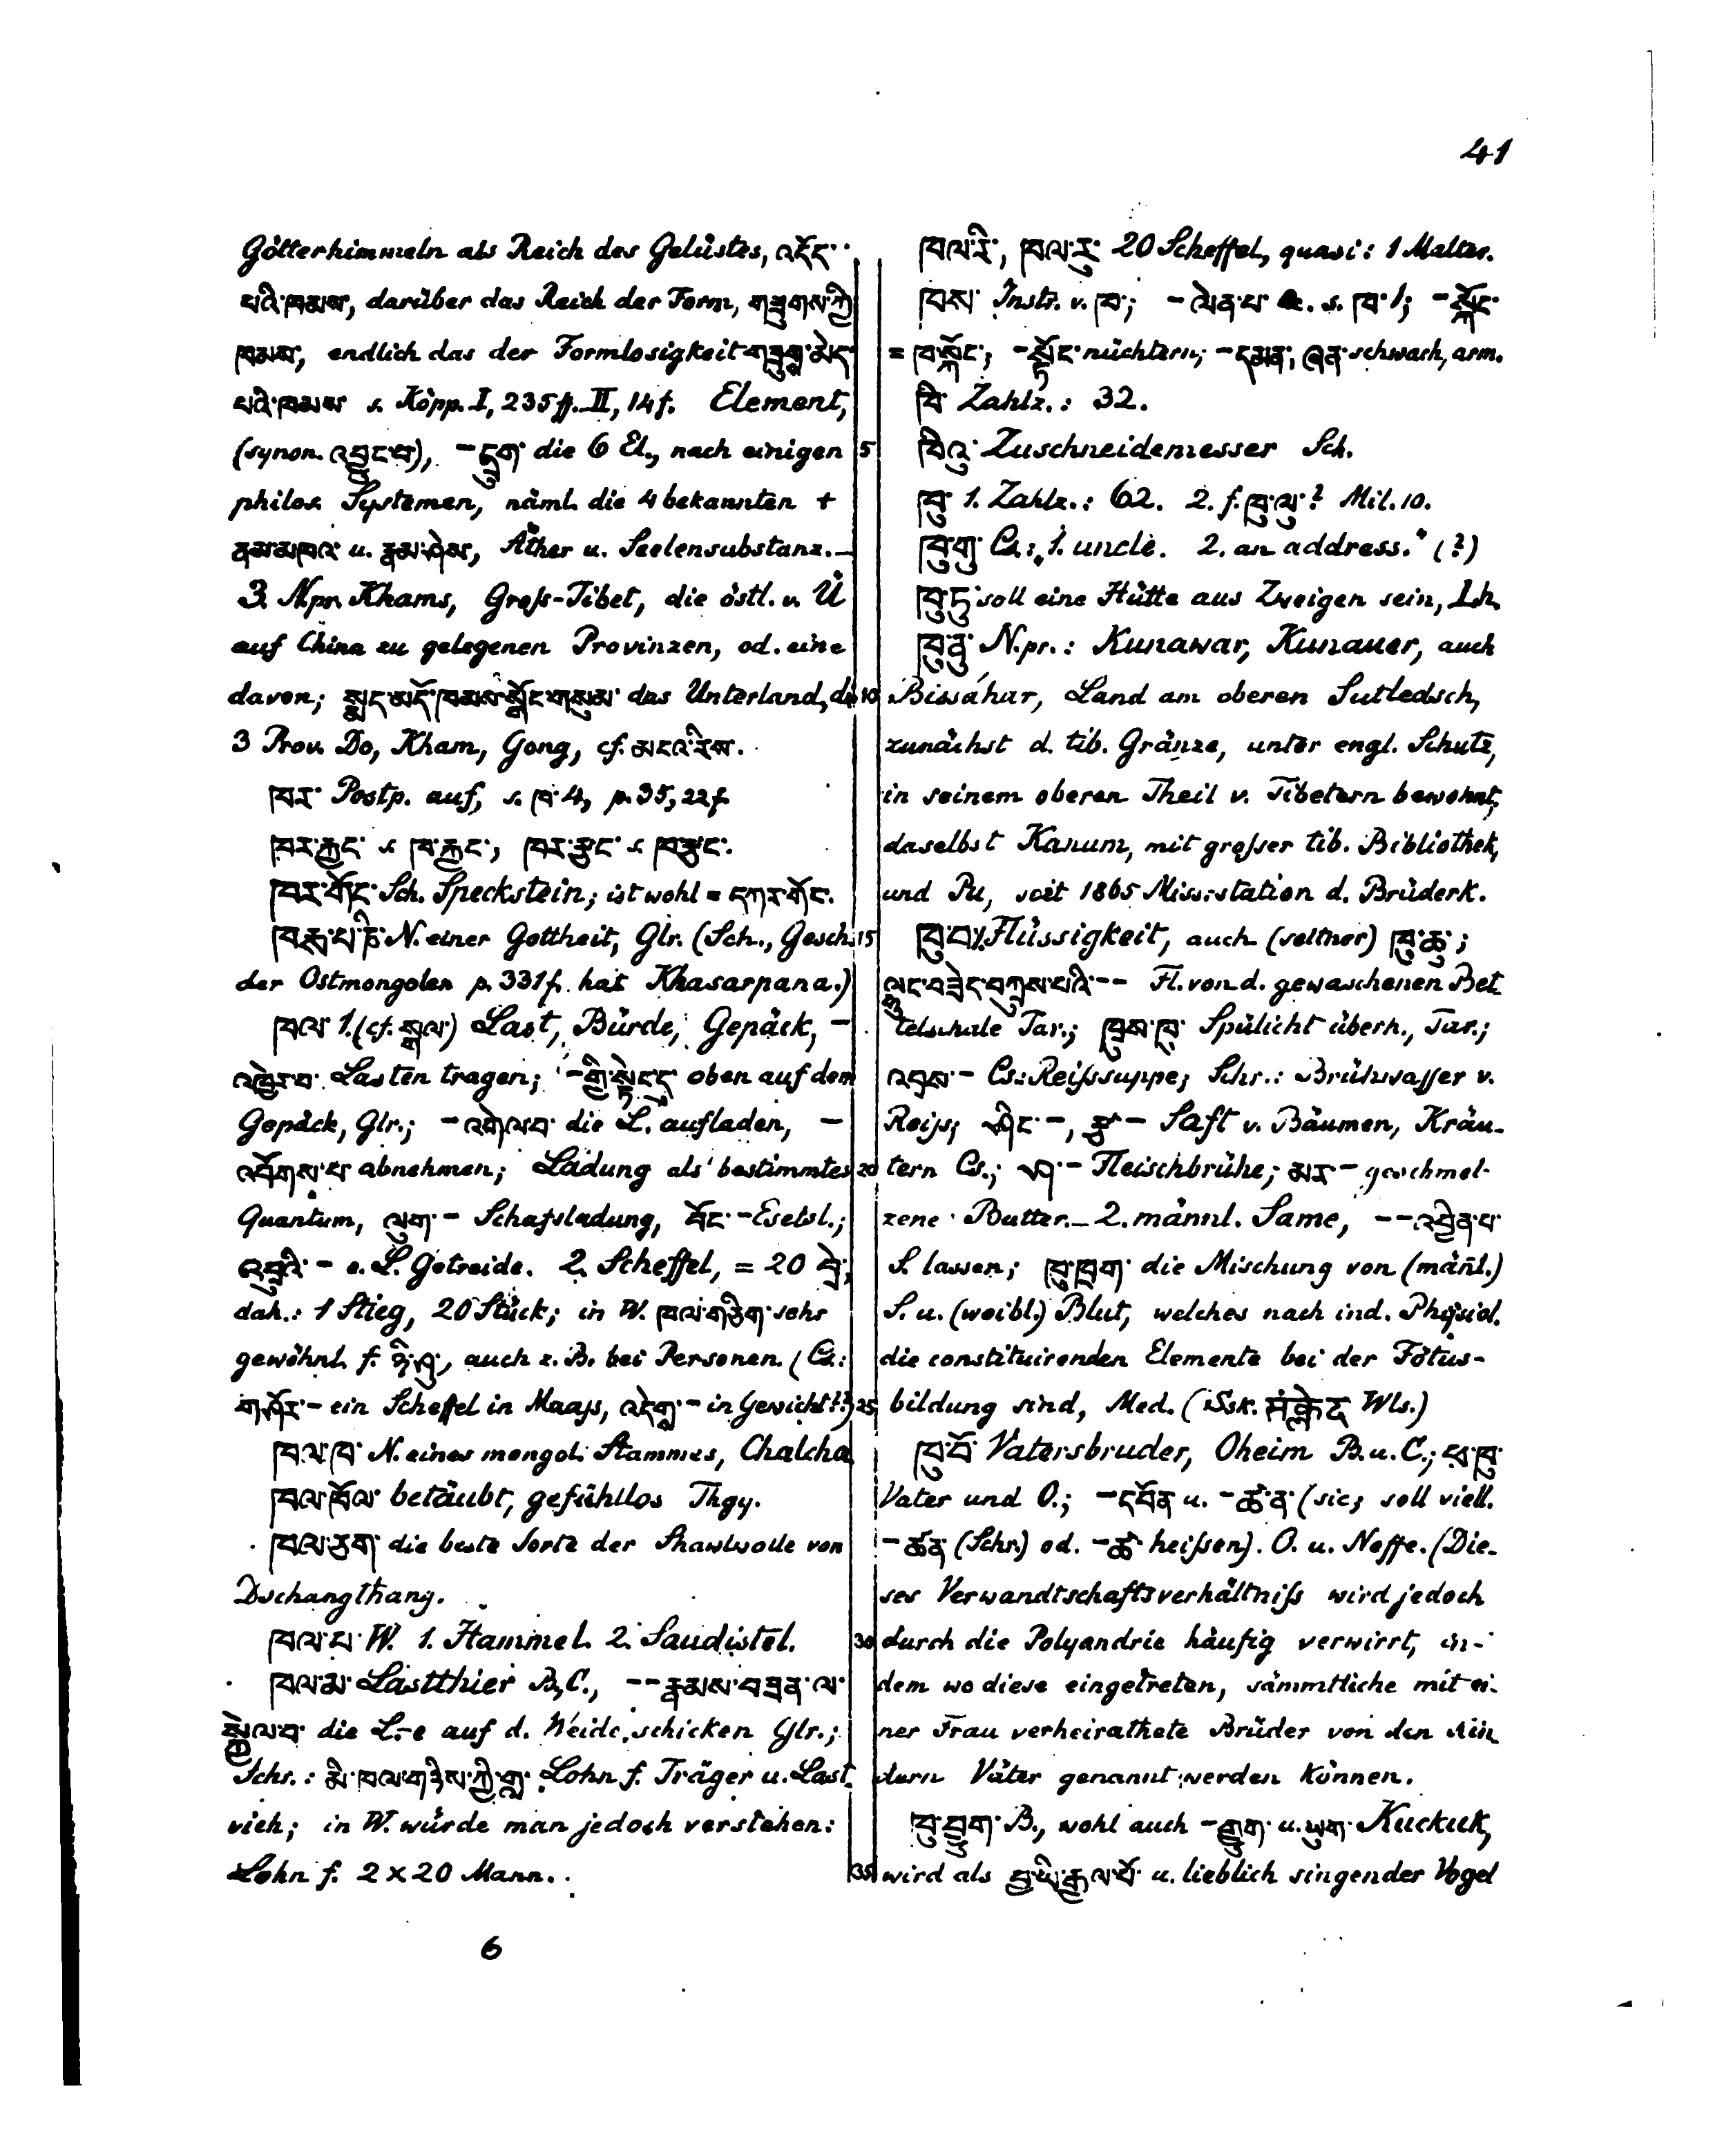 41
Götterhimmeln als Reich des Gelüstes, འདོད་
པའི་ཁམས, darüber das Reich der Form, གཟུགས་ཀྱི
ཁམས, endlich das der Formlosigkeit གཟུགས་མེད་
པའི་ཁམས s. Köpp. I, 235 ff. II, 14 f. Element,
(synon. འབྱུང་བ), – དྲུག་ die 6 El., nach einigen
philos. Systemen, näml. die 4 bekannten +
ནམ་མཁའ u. རྣམ་ཤེས, Äther u. Seelensubstanz. –
3. N.pr. Khams, Gross-Tibet, die östl. v. Ü
auf China zu gelegenen Provinzen, od. eine
davon; སྨད་མདོ་ཁམས་སྒོང་གསུམ་ das Unterland, die
3 Prov. Do, Kham, Gong, cf. མངའ་རིས.
ཁར་ Postp. auf, s. ཁ་ 4, p. 35, 22 f.
ཁར་རྐྱང་ s. ཁ་རྐྱང་, ཁར་རྫང་ s. ཁ་རྫང་.
ཁར་གོང་ Sch. Speckstein; ist wohl = དཀར་གོང་.
ཁརྶ་པ་ཎི་ N. einer Gottheit, Glr. (Sch., Gesch.
der Ostmongolen p. 331 f. hat Khasarpana.)
ཁལ་ 1. (cf. སྒལ་) Last, Bürde, Gepäck, –
འཁེར་བ་ Lasten tragen; – གྱི་སྟེང་དུ oben auf dem
Gepäck, Glr.; – འགེལ་བ་ die L. aufladen, –
འབོགས་པ་ abnehmen; Ladung als bestimmtes
Quantum, ལུག་ – Schafsladung, བོང་ – Eselsl.;
འབྲུའི་ – e. L. Getreide. 2. Scheffel, = 20 བྲེ;
dah.: 1 Stieg, 20 Stück; in W. ཁལ་གཅིག་ sehr
gewöhnl. f. ཉི་ཤུ, auch z. B. bei Personen. (Cs.:
གཤོར་ – ein Scheffel in Maass, འདེགས་ – in Gewicht??)
ཁལ་ཁ་ N. eines mongol. Stammes, Chalcha
ཁལ་ཁོལ་ betäubt, gefühllos Thgy.
ཁལ་ཅག་ die beste Sorte der Shawlwolle von
Dschangthang.
ཁལ་པ་ W. 1. Hammel. 2. Saudistel.
ཁལ་མ་ Lastthier B, C., –– རྣམས་བཟན་ལ་
སྐྱེལ་བ་ die L.-e auf d. Weide schicken Glr.;
Schr.: མི་ཁལ་གཉིས་ཀྱི་གླ་ Lohn f. Träger u. Last
vieh; in W. würde man jedoch verstehen:
Lohn f. 2 x 20 Mann.
ཁལ་རི་, ཁལ་རུ་ 20 Scheffel, quasi: 1 Malter.
ཁས་ Instr. v. ཁ་; – ལེན་པ་ s. ཁ་ 1; – སྐོང་
= ཁ་སྐོང་; – སྟོང་ nüchtern; – དམན་, ཞན་ schwach, arm.
ཁི་ Zahlz.: 32.
ཁིའུ་ Zuschneidemesser Sch.
ཁུ་ 1. Zahlz.: 62. 2. f. ཁུ་ལུ་? Mil. 10.
ཁུ་གུ་ Cs.: „1. uncle. 2. an address." (?)
ཁུ་ཏུ་ soll eine Hütte aus Zweigen sein, Lh.
ཁུ་ནུ་ N.pr.: Kunawar, Kunauer, auch
Bissáhar, Land am oberen Sutledsch,
zunächst d. tib. Gränze, unter engl. Schutz,
in seinem oberen Theil v. Tibetern bewohnt,
daselbst Kanum, mit grosser tib. Bibliothek,
und Pu, seit 1865 Miss:station d. Brüderk.
ཁུ་བ་ 1. Flüssigkeit, auch (seltner) ཁུ་ཆུ་;
ལྷུང་བཟེད་བཀྲུས་པའི་ –– Fl. von d. gewaschenen Bet
telschale Tar.; ཁྲུས་ཁུ་ Spülicht überh., Tar.;
འབྲས་ – Cs.: Reissuppe; Schr.: Brühwasser v.
Reis; ཤིང་ –, རྩྭ་ – Saft v. Bäumen, Kräu-
tern Cs.; ཤ་ – Fleischbrühe; མར་ – geschmol-
zene Butter. – 2. männl. Same, –– འབྱིན་པ་
S. lassen; ཁུ་ཁྲག་ die Mischung von (mäñl.)
S. u. (weibl.) Blut, welches nach ind. Physiol.
die constituirenden Elemente bei der Fötus-
bildung sind, Med. (Ssk. संक्लेद Wls.)
ཁུ་བོ་ Vatersbruder, Oheim B. u. C.; ཕ་ཁུ་
Vater und O.; – དབོན་ u. – ཚ་ན་ (sic; soll viell.
– ཚན་ (Schr.) od. – ཚ་ heissen). O. u. Neffe. (Die-
ses Verwandtschaftsverhältniss wird jedoch
durch die Polyandrie häufig verwirrt, in-
dem wo diese eingetreten, sämmtliche mit ei-
ner Frau verheirathete Brüder von den Kin
dern Väter genannt werden können.
ཁུ་བྱུག་ B., wohl auch – གྱུག་ u. ཡུག་ Kuckuk,
wird als བྱ་ཡི་རྒྱལ་པོ་ u. lieblich singender Vogel
5
10
15
20
25
30
35
6